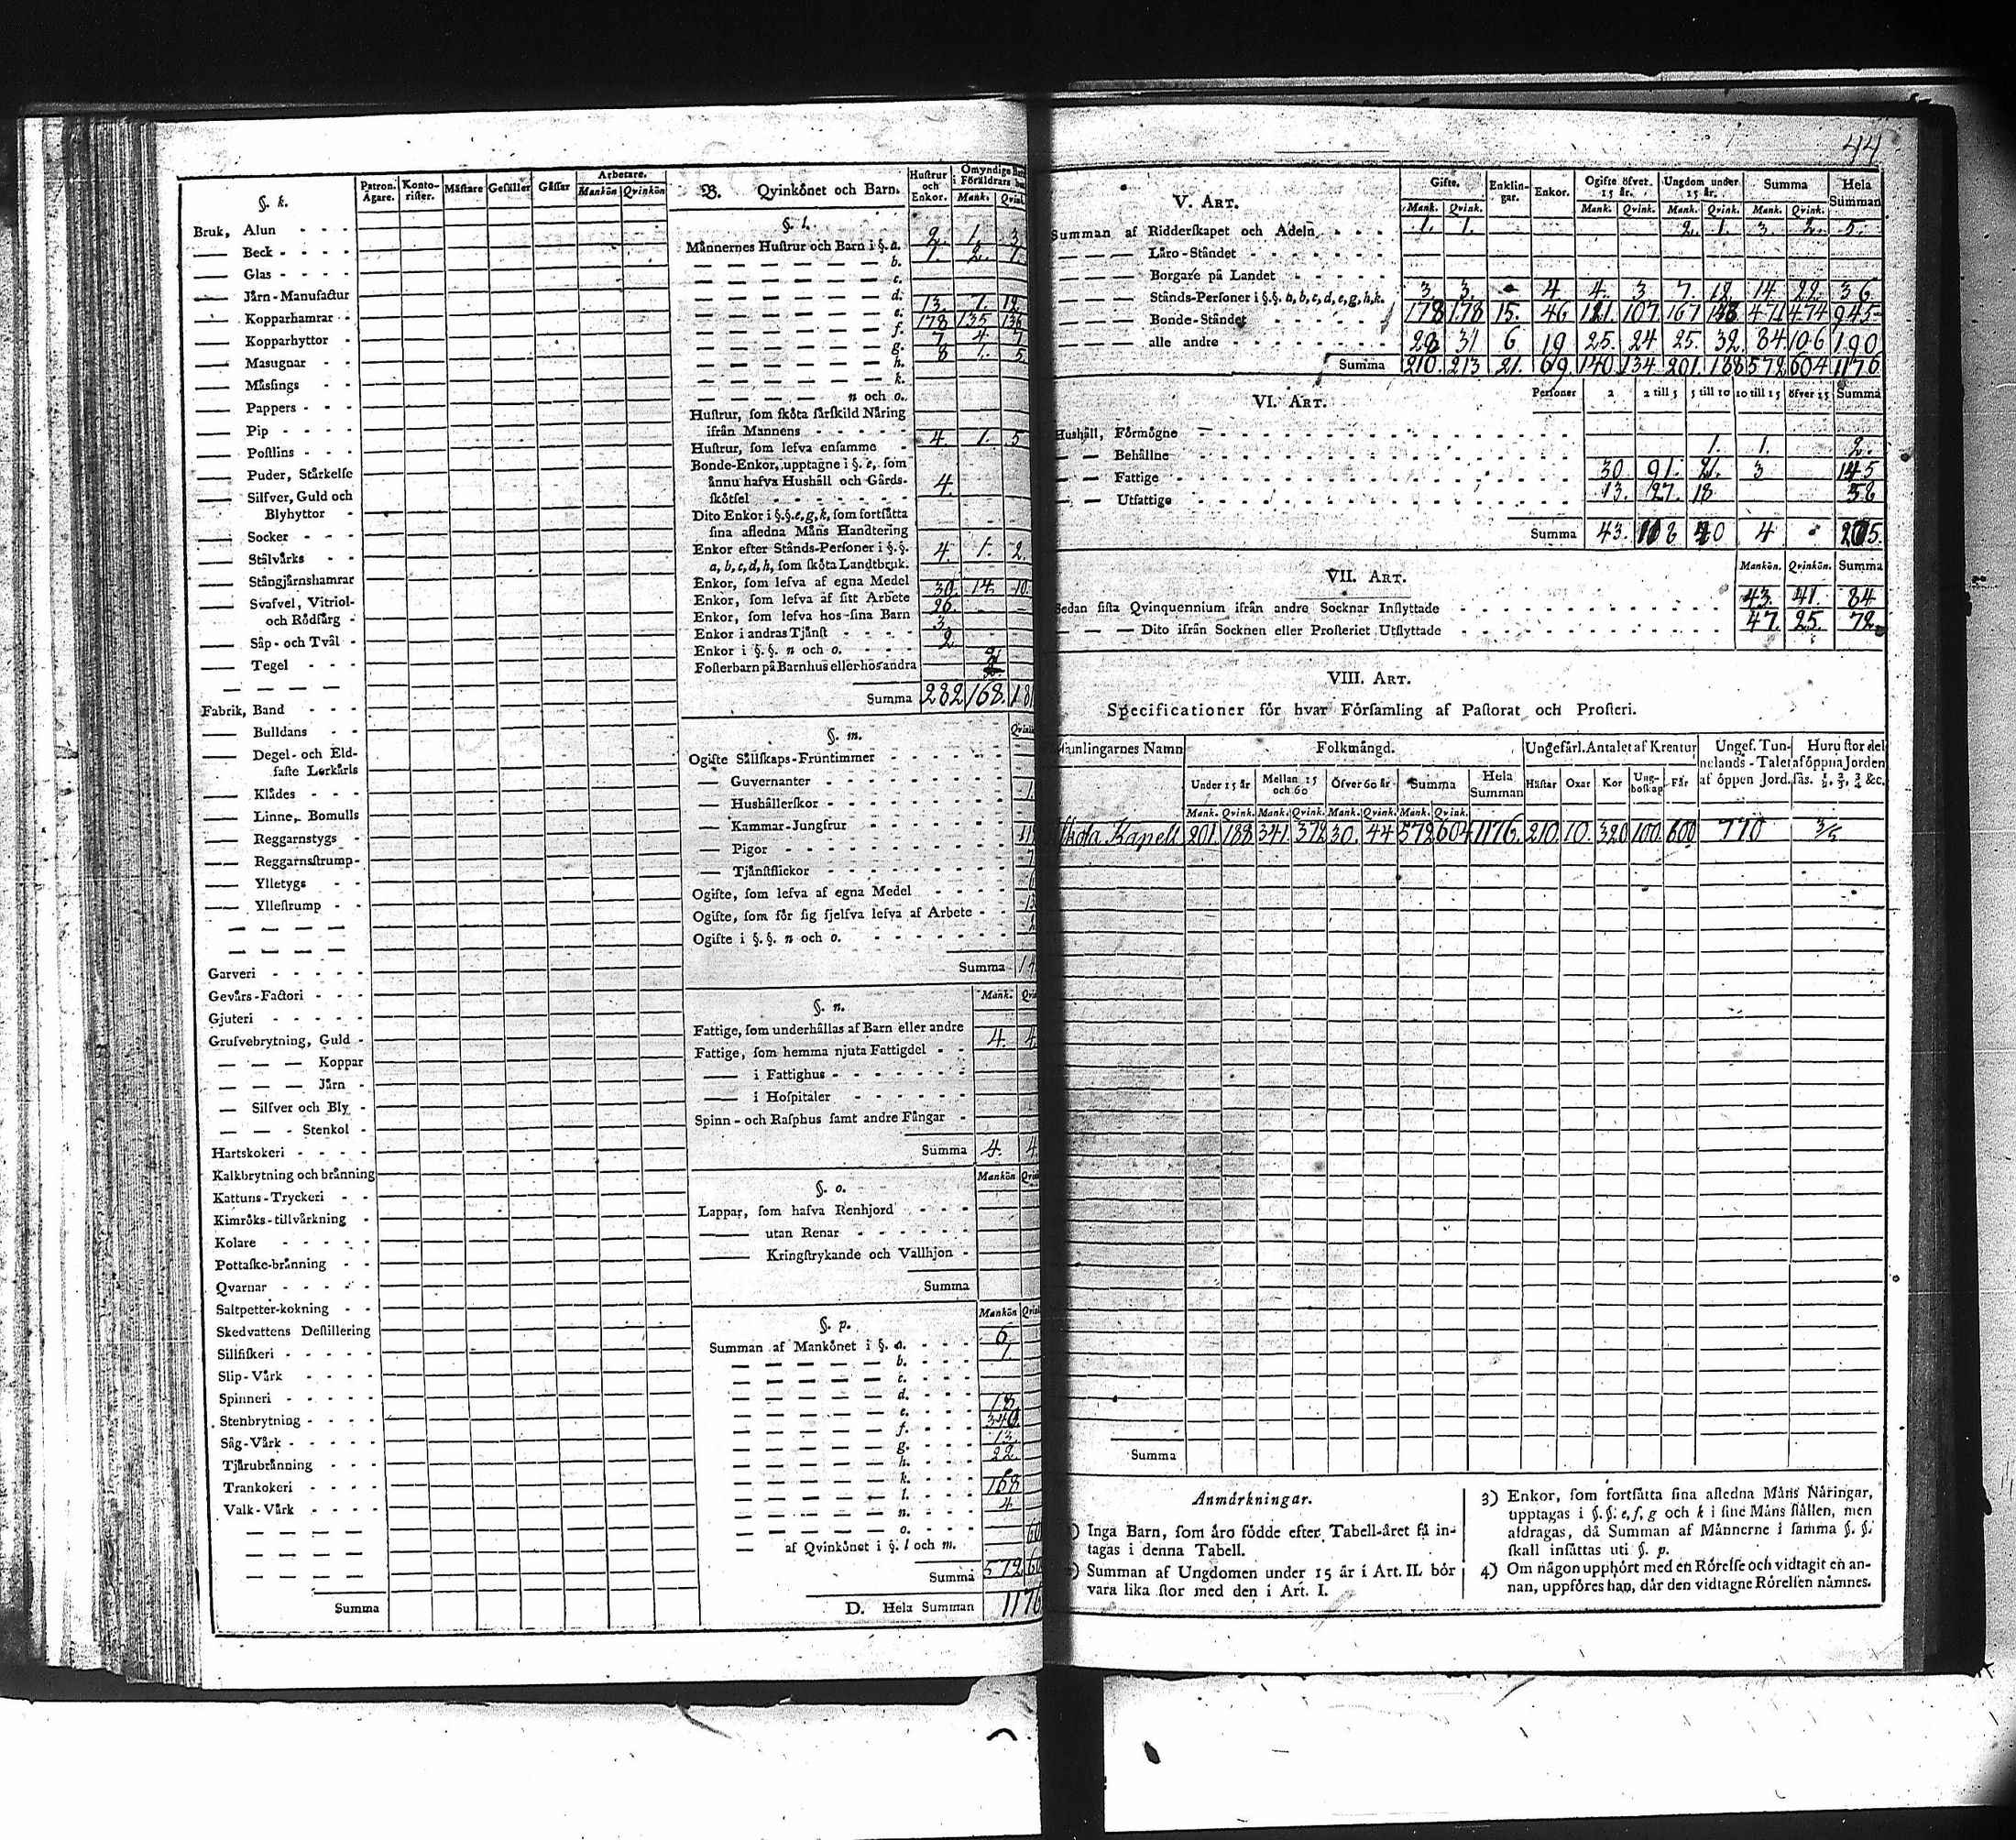 44
§. k.
Patron. Ågare.
Konto-rister.
Måstare
Gesåller
Gåsser
Arbetare.
Mankön Qvinkön
Bruk, Alun
Beck
Glas
Jårn-Manufactur
Kopparhamrar
Kopparhyttor
Masugnar
Måssings
Pappers
Pip
Postlins
Puder, Stårkelse
Silfver, Guld och
Blyhyttor
Socker
Stålvårks
Stångjårnshamrar
Svafvel, Vitriol-
och Rödfårg
Såp- och Tvål
Tegel
Fabrik, Band
Bulldans
Degel- och Eld-
faste Lerkårls
Klådes
Linne, Bomulls
Reggarnstygs
Reggarnsstrump
Ylletygs
Yllestrump
Garveri
Gevårs-Factori
Gjuteri
Grufvebrytning, Guld
Koppar
Jårn
Silfver och Bly
Stenkol
Hartskokeri
Kalkbrytning och brånning
Kattuns-Tryckeri
Kimröks-tillvårkning
Kolare
Pottaske-brånning
Qvarnar
Saltpetter-kokning
Skedvattens Destillering
Sillfiskeri
Slip-Vårk
Spinneri
Stenbrytning
Såg-Vårk
Tjårubrånning
Trankokeri
Valk-Vårk
Summa
B. Qvinkönet och Barn.
Hustrur och Enkor.
Omyndige
i Föråldrars
Mank.
§. l.
Månnernes Hustrur och Barn i §. a. 2. 1. 3
b. 1. 2. 1
c.
d. 13 7. 12
e. 178 135 136
f. 7 4. 7
g. 8 1. 5
h.
k.
n och o.
Hustrur, som sköta sårskild Nåring
ifrån Mannens
Hustrur, som lefva ensamme 4. 1. 5
Bonde-Enkor, upptagne i §. e, som
ånnu hafva Hushåll och Gårds-
skötsel 4.
Dito Enkor i §.§. e, g, k, som fortsåtta
sina afledna Måns Handtering
Enkor efter Stånds-Personer i §.§.
a, b, c, d, h, som sköta Landtbruk. 4. 1. 2.
Enkor, som lefva af egna Medel
Enkor, som lefva af sitt Arbete 30. 14. 10.
Enkor, som lefva hos sina Barn 26.
Enkor i andras Tjånst 3.
Enkor i §.§. n och o. 2
Fosterbarn på Barnhus eller hos andra
Summa 282 168.
§. m.
Ogifte Sållskaps-Fruntimmer
Guvernanter
Hushållerskor
Kammar-Jungfrur
Pigor
Tjånstflickor
Ogifte, som lefva af egna Medel
Ogifte, som för sig sjelfva lefva af Arbete
Ogifte i §.§. n och o.
Summa
§. n.
Mank.
Fattige, som underhållas af Barn eller andre 4. 4
Fattige, som hemma njuta Fattigdel
i Fattighus
i Hospitaler
Spinn- och Rasphus samt andre Fångar
Summa 4. 4
§. o.
Mankön
Lappar, som hafva Renhjord
utan Renar
Kringstrykande och Vallhjon
Summa
§. p.
Mankön
Summan af Mankönet i §. a. 6
b. 1.
c.
d. 18
e. 340
f. 13
g. 22
h.
k.
l. 168
n. 4
o.
af Qvinkönet i §. l och m.
Summa 572
D. Hela Summan 1176
V. ART.
Gifte.
Mank. Qvink.
Enklin-gar.
Enkor.
Ogifte öfver 15 år.
Mank. Qvink.
Ungdom under 15 år.
Mank. Qvink.
Summa
Mank. Qvink.
Hela Summan
Summan af Ridderskapet och Adeln 1. 1. 2. 1. 3 2. 5.
Låro-Ståndet
Borgare på Landet
Stånds-Personer i §.§. a, b, c, d, e, g, h, k. 3 3. 4 4. 3 7. 18 14 22 36
Bonde-Ståndet 178 178 15. 46 111. 107 167 471 474 945
alle andre 28 31 6 19 25. 24 25. 32. 84 106 190
Summa 210. 213 21. 69. 140 134 201. 188 572 604 1176
VI. ART.
Personer 2 2 till 5 5 till 10 10 till 15 öfver 15 Summa
Hushåll, Förmögne
Behållne 1. 1. 2.
Fattige 30. 91. 21. 3 145
Utfattige 13. 27. 18 58
Summa 43. 118 40 4 205.
VII. ART.
Mankön. Qvinkön. Summa
Sedan sista Qvinquennium ifrån andre Socknar Inflyttade 43. 41. 84
Dito ifrån Socknen eller Prosteriet Utflyttade 47. 25. 72.
VIII. ART.
Specificationer för hvar Församling af Pastorat och Prosteri.
Folkmångd.
Ungefårl. Antalet af Kreatur
Ungef. Tun-
nelands-Talet
af öppen Jord.
Huru stor del
af öppna Jorden
sås. ½, ⅔, ¾ &c.
Under 15 år
Mellan 15 och 60
Öfver 60 år
Summa
Hela Summan
Håstar Oxar Kor Ung-boskap Får
Mank. Qvink. Mank. Qvink. Mank. Qvink. Mank. Qvink.
Kapell 201. 188 341. 372 30. 44 572 604 1176. 210. 10. 320 100. 600 770 3/5
Summa
Anmårkningar.
Inga Barn, som åro födde efter Tabell-året få in-
tagas i denna Tabell.
Summan af Ungdomen under 15 år i Art. II. bör
vara lika stor med den i Art. I.
3) Enkor, som fortsåtta sina afledna Måns Nåringar,
upptagas i §. §. e, f, g och k i sine Måns stållen, men
afdragas, då Summan af Månnerne i samma §. §.
skall insåttas uti §. p.
4) Om någon upphört med en Rörelse och vidtagit en an-
nan, uppföres han, dår den vidtagne Rörelsen nåmnes.